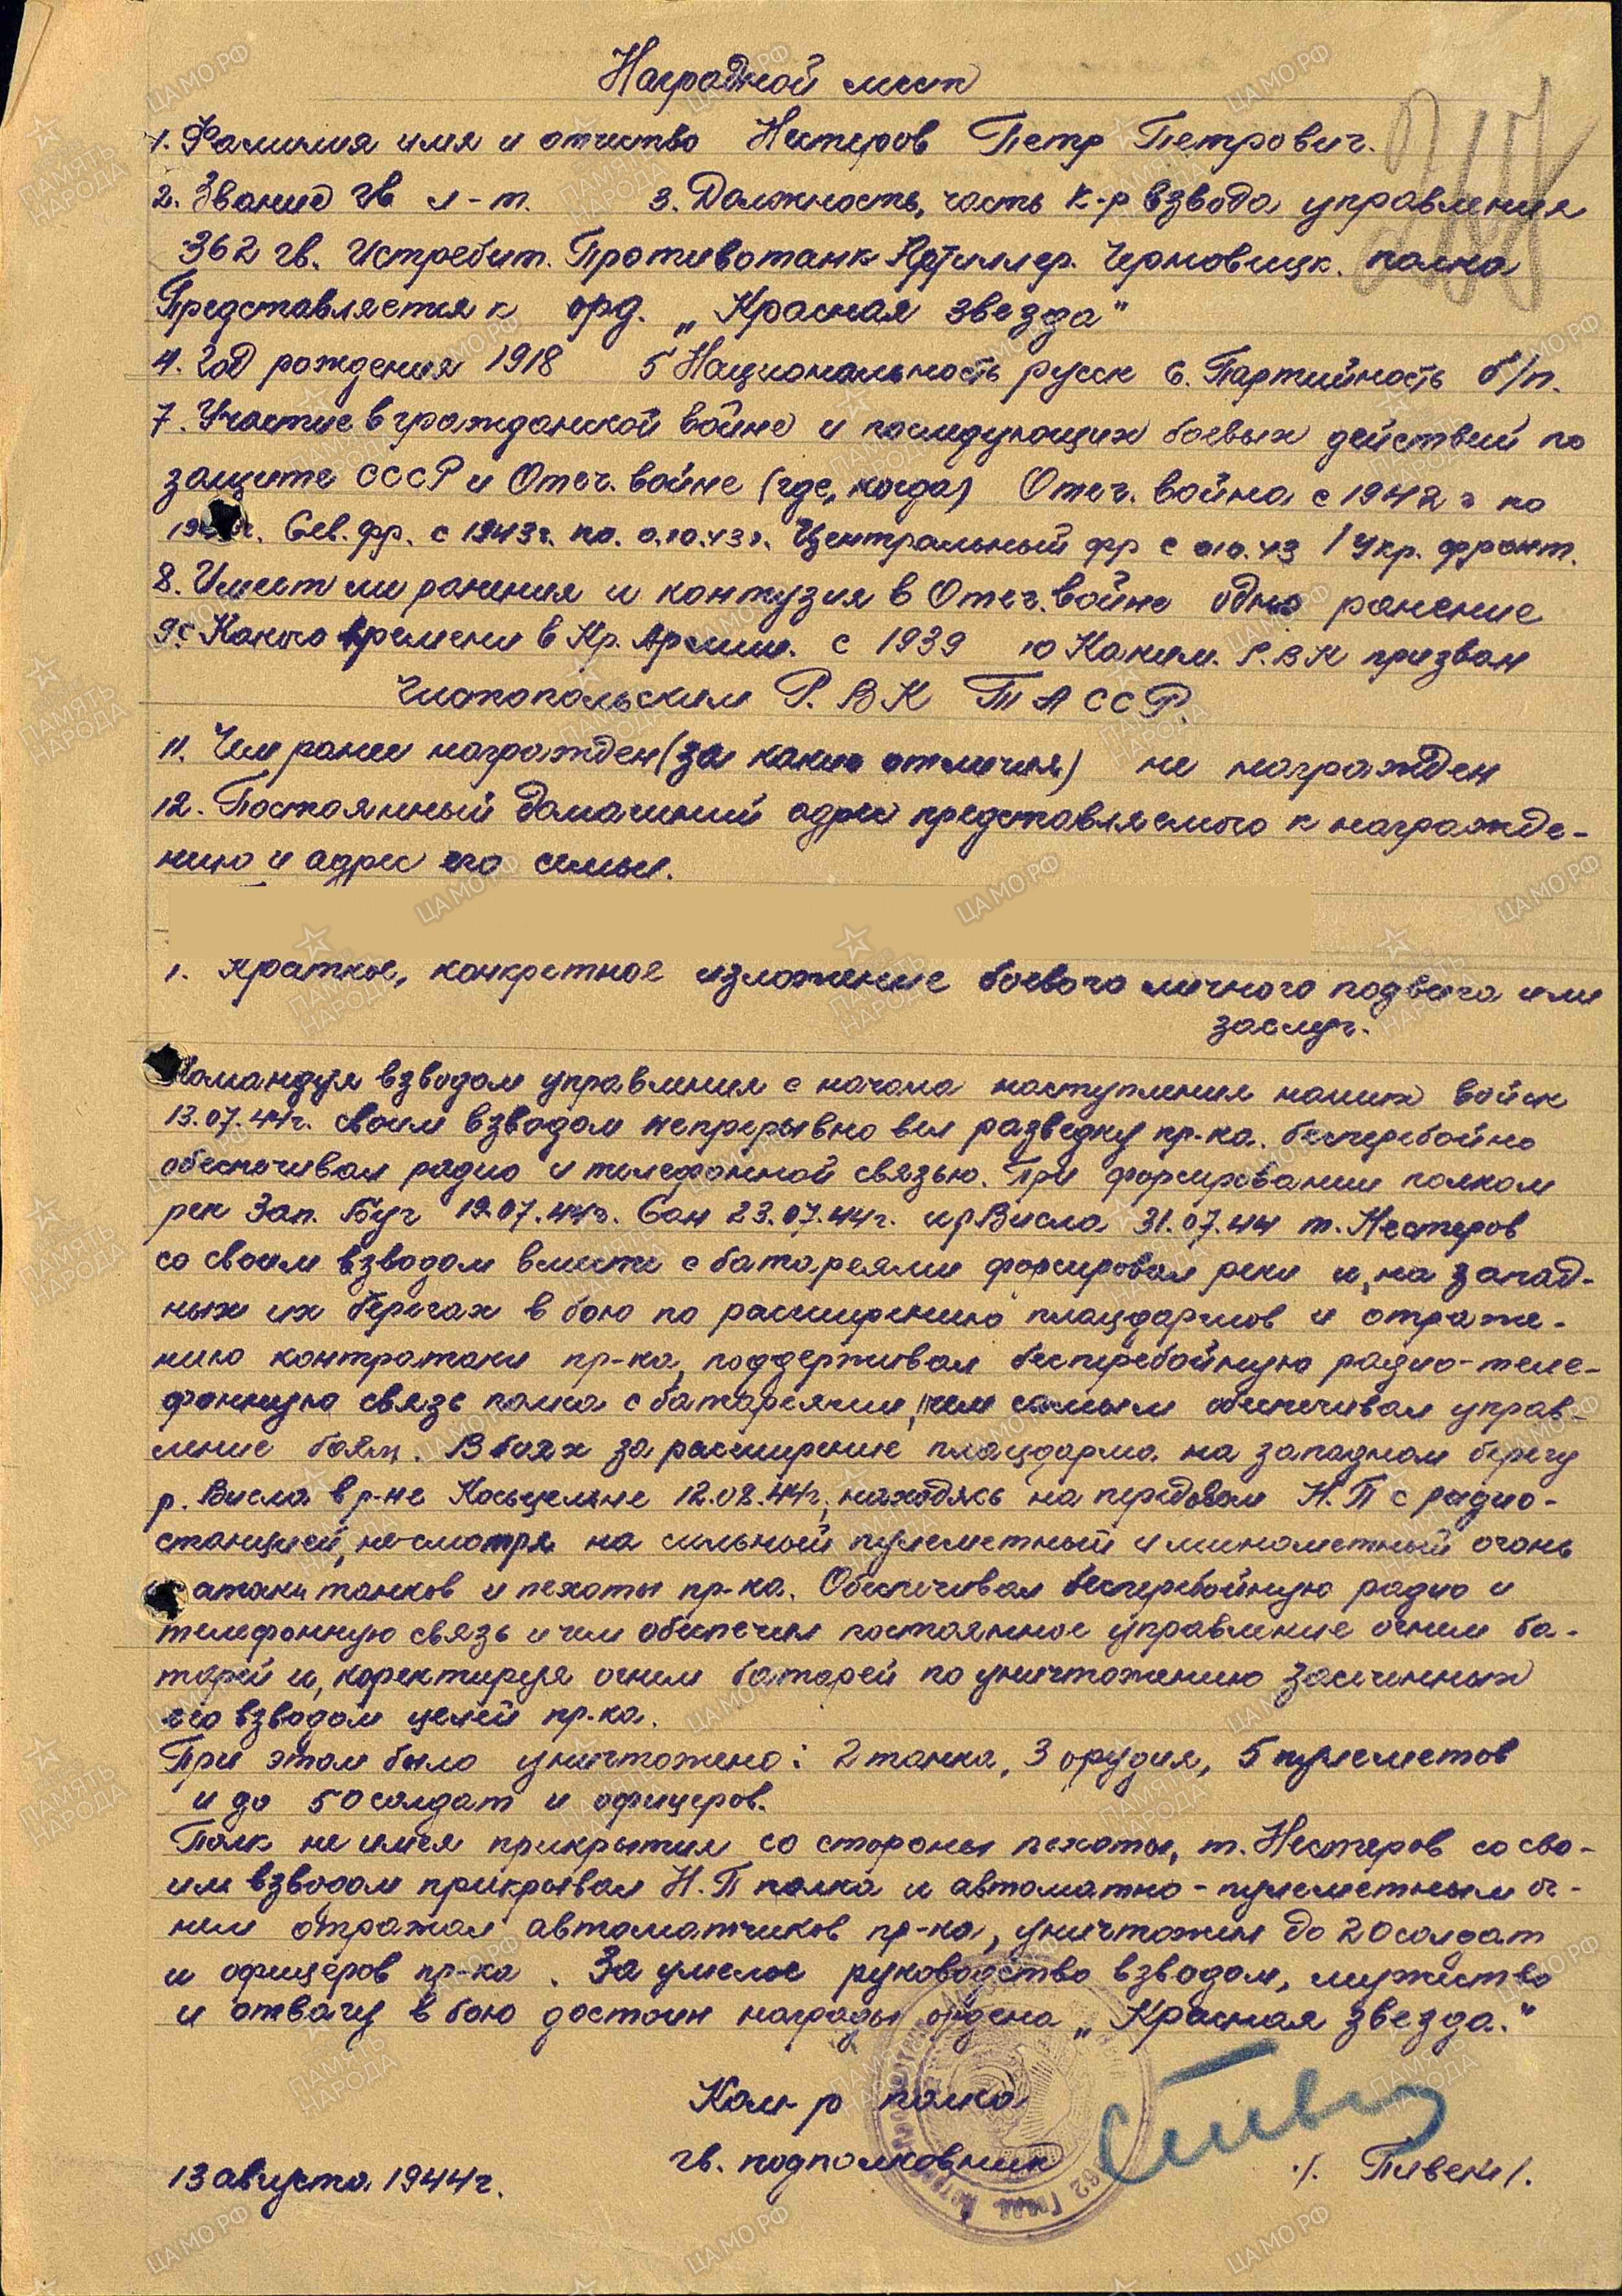 Наградной лист
1. Фамилия имя и отчество Нестеров Петр Петрович.
2. Звание гв л-т. 3. Должность, часть к-р взвода управления
362 гв. Истребит. Противотанк Артиллер. Черновицк. полка
Представляется к орд. „Красная звезда"
4. Год рождения 1918 5 Национальность русск 6. Партийность б/п.
7. Участие в гражданской войне и последующих боевых действий по
защите СССР и Отеч. войне (где, когда) Отеч. война с 1942 г по
г. Сев. фр. с 1943г. по. 0.10.43г. Центральный фр с 010.43 1 Укр. фронт.
8. Имеет ли ранения и контузия в Отеч. войне одно ранение
9. С Какого времени в Кр. Армии. с 1939 10 Каким. Р.В.К призван
Чистопольским Р. В К ТАССР.
11. Чем ранее награжден (за какие отличия) не награжден
12. Постоянный домашний адрес представляемого к награжде-
нию и адрес его семьи.
1. Краткое, конкретное изложение боевого личного подвига или
заслуг.
Командуя взводом управления с начала наступления наших войск
13.07.44г. своим взводом непрерывно вел разведку пр-ка. бесперебойно
обеспечивал радио и телефонной связью. При форсировании полком
рек Зап. Буг 19.07.44г. Сан 23.07.44г. и р Висла 31.07.44 т. Нестеров
со своим взводом вместе с батареями форсировал реки и, на запад-
ных их берегах в бою по расширению плацдармов и отраже-
нию контратаки пр-ка, поддерживал бесперебойную радио-теле-
фонную связь полка с батареями, чем самым обеспечивал управ-
ление боям. В боях за расширение плацдарма на западном берегу
р. Висла в р-не Косьцелене 12.08.44г., находясь на передовом Н.П с радио-
станцией, несмотря на сильный пулеметный и минометный огонь
атаки танков и пехоты пр-ка. Обеспечивал бесперебойную радио и
телефонную связь и чем обеспечил постоянное управление огнем ба-
тарей и, коректируя огнем батарей по уничтожению засеченных
его взводом целей пр-ка.
При этом было уничтожено: 2 танка, 3 орудия, 5 пулеметов
и до 50 солдат и офицеров.
Полк не имея прикрытия со стороны пехоты, т. Нестеров со сво-
им взводом прикрывал Н.П полка и автоматно-пулеметным ог-
нем отражал автоматчиков пр-ка, уничтожил до 20 солдат
и офицеров пр-ка. За умелое руководство взводом, мужество
и отвагу в бою достоин награды ордена „Красная звезда."
Ком-р полка
гв. подполковник /. Пивень/.
13 августа 1944г.